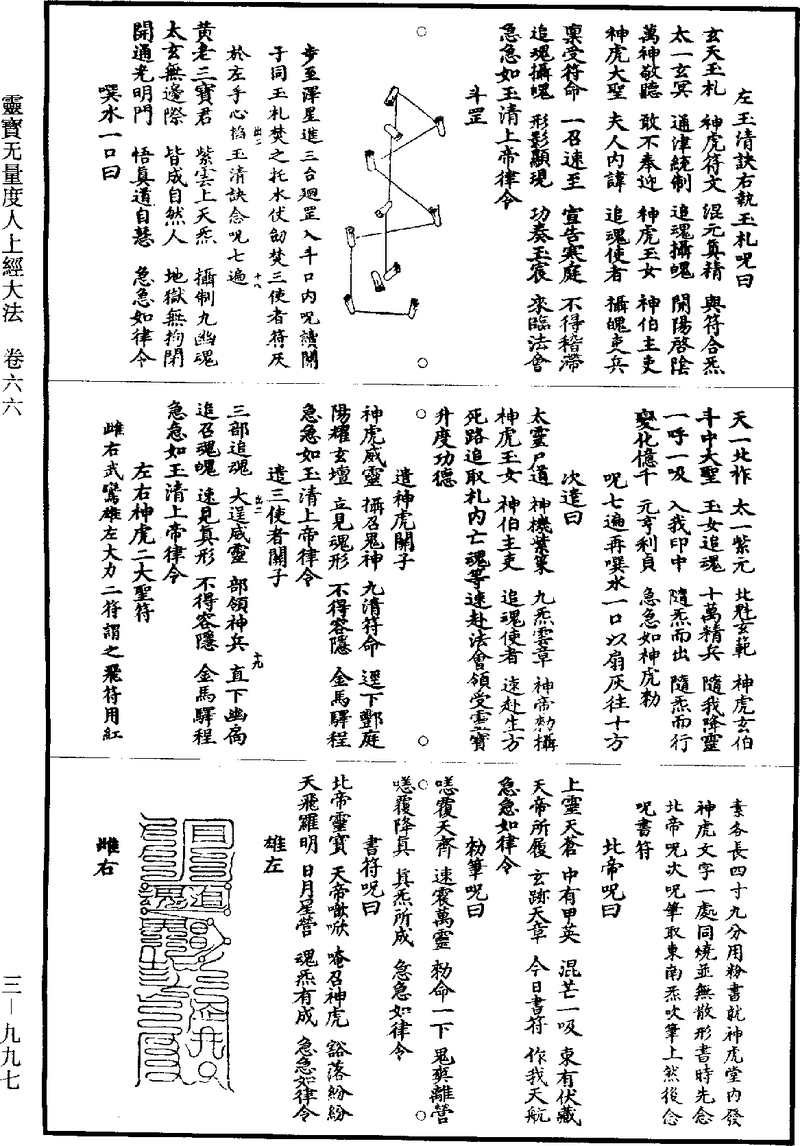 靈寶无量度人上經大法　卷六六
三－九九七
左玉清訣右執玉札呪曰
玄天玉札　神虎符文　混元真精　與符合炁
太一玄冥　通津統制　追魂攝魄　開陽啓陰
萬神敬聽　敢不奉迎　神虎玉女　神伯主吏
神虎大聖　夫人內諱　追魂使者　攝魄吏兵
稟受符命　一召速至　宣告寒庭　不得稽滯
追魂攝魄　形影顯現　功奏玉宸　來臨法會
急急如玉清上帝律令
斗罡
步至渾星進三台廻罡入斗口內呪讀關
子同玉札焚之托水仗劒焚三使者符灰
於左手心掐玉清訣念呪七遍
黃老三寶君　紫雲上天炁　攝制九幽魂
太玄無邊際　皆成自然人　地獄無拘閉
開通光明門　悟真道自慧　急急如律令
噀水一口曰
天一北祚　太一紫元　北魁玄範　神虎玄伯
斗中大聖　玉女追魂　十萬精兵　隨我降靈
一呼一吸　入我印中　隨炁而出　隨炁而行
變化億千　元亨利貞　急急如神虎勑
呪七遍再噀水一口以扇灰往十方
次遣曰
太靈尸道　神機紫篆　九炁雲章　神帝勑攝
神虎玉女　神伯主吏　追魂使者　速赴生方
死路追取札內亡魂等速赴法會領受靈寶
升度功德
遣神虎關子
神虎威靈　攝召鬼神　九清符命　逕下酆庭
陽耀玄壇　立見魂形　不得容隱　金馬驛程
急急如玉清上帝律令
遣三使者關子
三部追魂　大逞威靈　部領神兵　直下幽扃
追召魂魄　速見真形　不得容隱　金馬驛程
急急如玉清上帝律令
左右神虎二大聖符
雌右武鸞雄左大力二符謂之飛符用紅
素各長四寸九分用粉書就神虎堂內發
神虎文字一處同燒並無散形書時先念
北帝呪次呪筆取東南炁吹筆上然後念
呪書符
北帝呪曰
上靈天蒼　中有甲英　混芒一吸　東有伏藏
天帝所履　玄跡天章　今日書符　作我天航
急急如律令
勑筆呪曰
嗯覆天齊　速震萬靈　勑命一下　鬼爽離營
嗯覆降真　真炁所成　急急如律令
書符呪曰
北帝靈寶　天帝嗽欣　唵召神虎　豁落紛紛
天飛羅明　日月星營　魂炁有成　急急如律令
雄左
雌右